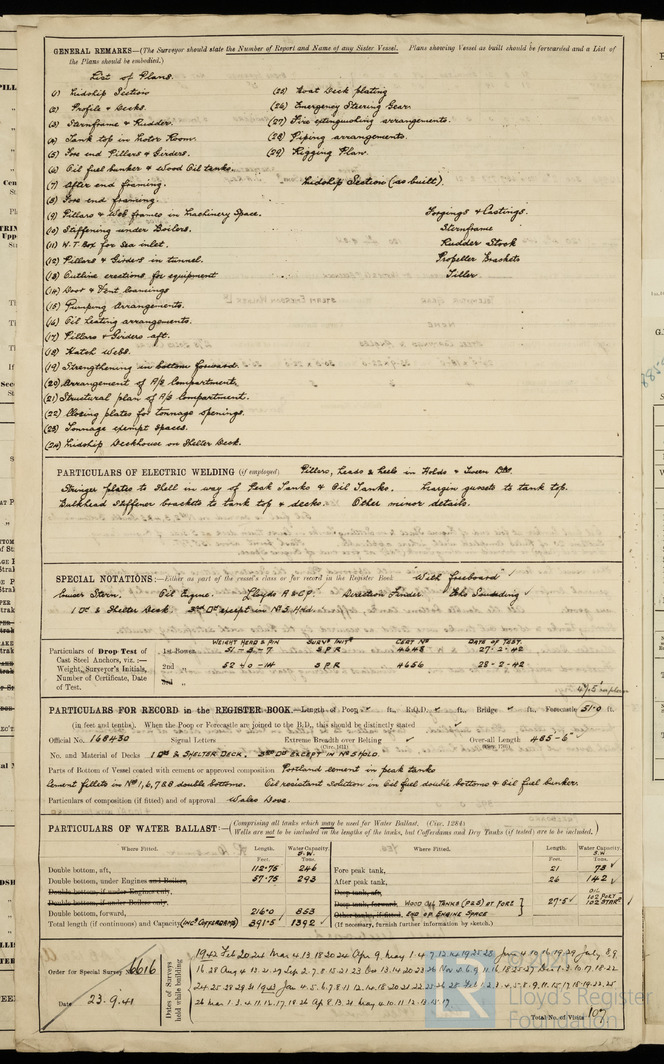 GENERAL REMARKS—(The Surveyor should state the Number of Report and Name of any Sister Vessel. Plans showing Vessel as built should be forwarded and a List of
the Plans should be embodied.)
List of Plans.
(1) Midship Section
(2) Profile & Decks.
(3) Sternframe & Rudder.
(4) Tank top in Motor Room.
(5) Fore end Pillars & Girders.
(6) Oil fuel bunker & Wood Oil tanks.
(7) After end framing.
(8) Fore end framing.
(9) Pillars & Web frames in Machinery Space.
(10) Stiffening under Boilers.
(11) W.T. Box for Sea inlet.
(12) Pillars & Girders in tunnel.
(13) Outline erections for equipment
(14) Door & Vent Coamings
(15) Pumping Arrangements.
(16) Oil Heating arrangements.
(17) Pillars & Girders aft.
(18) Hatch Webs.
(19) Strengthening in bottom forward.
(20) Arrangement of A/S Compartments.
(21) Structural plan of A/S Compartment.
(22) Closing plates for tonnage openings.
(23) Tonnage exempt spaces.
(24) Midship Deckhouse on Shelter Deck.
(25) Boat Deck plating
(26) Emergency Steering Gear.
(27) Fire extinguishing arrangements.
(28) Piping arrangements.
(29) Rigging Plan.
Midship Section (as built).
Forgings & Castings.
Sternframe
Rudder Stock
Propeller Brackets
Tiller
PARTICULARS OF ELECTRIC WELDING (if employed) Pillars, heads & heels in Holds & Tween Dks.
Stringer plates to Shell in way of Peak Tanks & Oil Tanks. Margin gussets to tank top.
Bulkhead stiffener brackets to tank top & decks. Other minor details.
SPECIAL NOTATIONS:—Either as part of the vessel's class or for record in the Register Book "With freeboard"
Cruiser Stern. Oil Engine. Lloyds A & CP. Direction Finder. Echo Sounding
1 Dk & Shelter Deck. 3rd Dk except in No 5 Hold.
Particulars of Drop Test of
Cast Steel Anchors, viz.:—
Weight, Surveyor's Initials,
Number of Certificate, Date
of Test.
WEIGHT HEAD & PIN SURVR INITS CERT No DATE OF TEST
1st Bower 51 - 3 - 7 S P R 4648 27-2-42
2nd " 52 - 0 - 14 S P R 4656 28-2-42
3rd "
PARTICULARS FOR RECORD in the REGISTER BOOK.—Length of Poop ft., R.Q.D. ft., Bridge ft., Forecastle 51.0 ft.
(in feet and tenths). When the Poop or Forecastle are joined to the B.D., this should be distinctly stated
Official No. 168430 Signal Letters Extreme Breadth over Belting Over-all Length 485-6"
(Circ. 1611) (Circ. 1705)
No. and Material of Decks 1 DK & SHELTER DECK. 3RD DK EXCEPT IN No 5 HOLD
Parts of Bottom of Vessel coated with cement or approved composition Portland cement in peak tanks
Cement fillets in Nos 1, 6, 7 & 8 double bottoms. Oil resistant solution in oil fuel double bottoms & oil fuel bunker.
Particulars of composition (if fitted) and of approval Wales Dove.
PARTICULARS OF WATER BALLAST:— Comprising all tanks which may be used for Water Ballast. (Circ. 1284)
Wells are not to be included in the lengths of the tanks, but Cofferdams and Dry Tanks (if tested) are to be included.
Where Fitted. Length. Water Capacity.
Feet. S.W. Tons.
Double bottom, aft, 112.75 246
Double bottom, under Engines and Boilers, 57.75 293
Double bottom, if under Engines only,
Double bottom, if under Boilers only,
Double bottom, forward, 216.0 853
Total length (if continuous) and Capacity (INC. COFFERDAMS) 391.5 1392
Where Fitted. Length. Water Capacity.
Feet. S.W. Tons.
Fore peak tank, 21 73
After peak tank, 26 142
Deep tank, aft,
Deep tank, forward, WOOD OIL TANKS (P & S) AT FORE
Other tanks, if fitted, END OF ENGINE SPACE 27.5
OIL
102 PORT
102 STARD
(If necessary, furnish further information by sketch.)
Order for Special Survey 6616
Date 23.9.41
Dates of Surveys held while building
Total No. of Visits 107
Lloyd's Register
Foundation